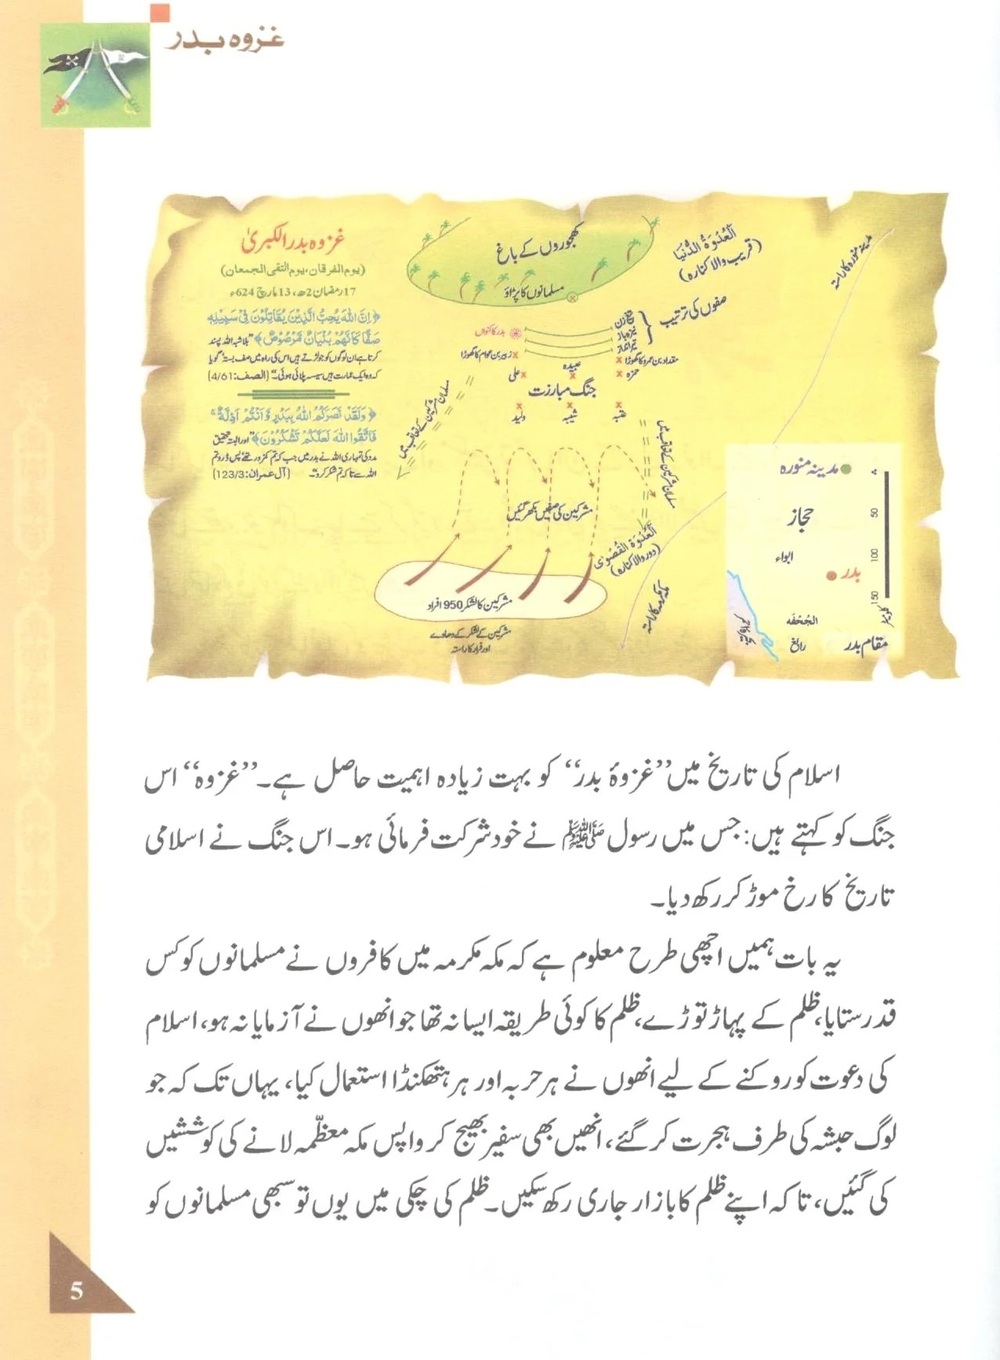 غزوہ بدر
غزوہ بدر الکبریٰ
(یوم الفرقان، یوم التقی الجمعان)
17 رمضان 2ھ، 13 مارچ 624ء
﴿إِنَّ اللّٰهَ يُحِبُّ الَّذِينَ يُقَاتِلُونَ فِي سَبِيلِهِ
صَفًّا كَأَنَّهُم بُنْيَانٌ مَّرْصُوصٌ﴾ ”بلاشبہ اللہ پسند
کرتا ہے ان لوگوں کو جو لڑتے ہیں اس کی راہ میں صف بستہ گویا
کہ وہ ایک عمارت ہیں سیسہ پلائی ہوئی۔“ (الصف: 4/61)
﴿وَلَقَدْ نَصَرَكُمُ اللّٰهُ بِبَدْرٍ وَّأَنْتُمْ أَذِلَّةٌ ۚ
فَاتَّقُوا اللّٰهَ لَعَلَّكُمْ تَشْكُرُونَ﴾ ”اور البتہ تحقیق
مدد کی تمہاری اللہ نے بدر میں جب کہ تم کمزور تھے پس ڈرو تم
اللہ سے تاکہ تم شکر کرو۔“ (آل عمران: 123/3)
کھجوروں کے باغ
مسلمانوں کا پڑاؤ
اَلْعُدْوَۃُ الدُّنْیَا
(قریب والا کنارہ)
مدینہ منورہ کا راستہ
صفوں کی ترتیب
تیغ زن
نیزہ باز
تیر انداز
بدر کا کنواں
زبیر بن عوام کا گھوڑا
مقداد بن عمرو کا گھوڑا
علی
عبیدہ
حمزہ
جنگ مبارزت
ولید
شیبہ
عتبہ
مسلمان مشرکین کے تعاقب میں
مسلمان مشرکین کے تعاقب میں
مشرکین کی صفیں بکھر گئیں
اَلْعُدْوَۃُ الْقُصْوٰی
(دور والا کنارہ)
مشرکین کا لشکر 950 افراد
مشرکین کے لشکر کے دھاوے
اور فرار کا راستہ
مکہ مکرمہ کا راستہ
مدینہ منورہ
حجاز
ابواء
بدر
الجُحْفَہ
رابغ
بحیرۂ قلزم
مقام بدر
0
50
100
150
کلومیٹر
اسلام کی تاریخ میں ”غزوۂ بدر“ کو بہت زیادہ اہمیت حاصل ہے۔ ”غزوہ“ اس
جنگ کو کہتے ہیں: جس میں رسول ﷺ نے خود شرکت فرمائی ہو۔ اس جنگ نے اسلامی
تاریخ کا رخ موڑ کر رکھ دیا۔
یہ بات ہمیں اچھی طرح معلوم ہے کہ مکہ مکرمہ میں کافروں نے مسلمانوں کو کس
قدر ستایا، ظلم کے پہاڑ توڑے، ظلم کا کوئی طریقہ ایسا نہ تھا جو انھوں نے آزمایا نہ ہو، اسلام
کی دعوت کو روکنے کے لیے انھوں نے ہر حربہ اور ہر ہتھکنڈا استعمال کیا، یہاں تک کہ جو
لوگ حبشہ کی طرف ہجرت کر گئے، انھیں بھی سفیر بھیج کر واپس مکہ معظّمہ لانے کی کوششیں
کی گئیں، تاکہ اپنے ظلم کا بازار جاری رکھ سکیں۔ ظلم کی چکی میں یوں تو سبھی مسلمانوں کو
5